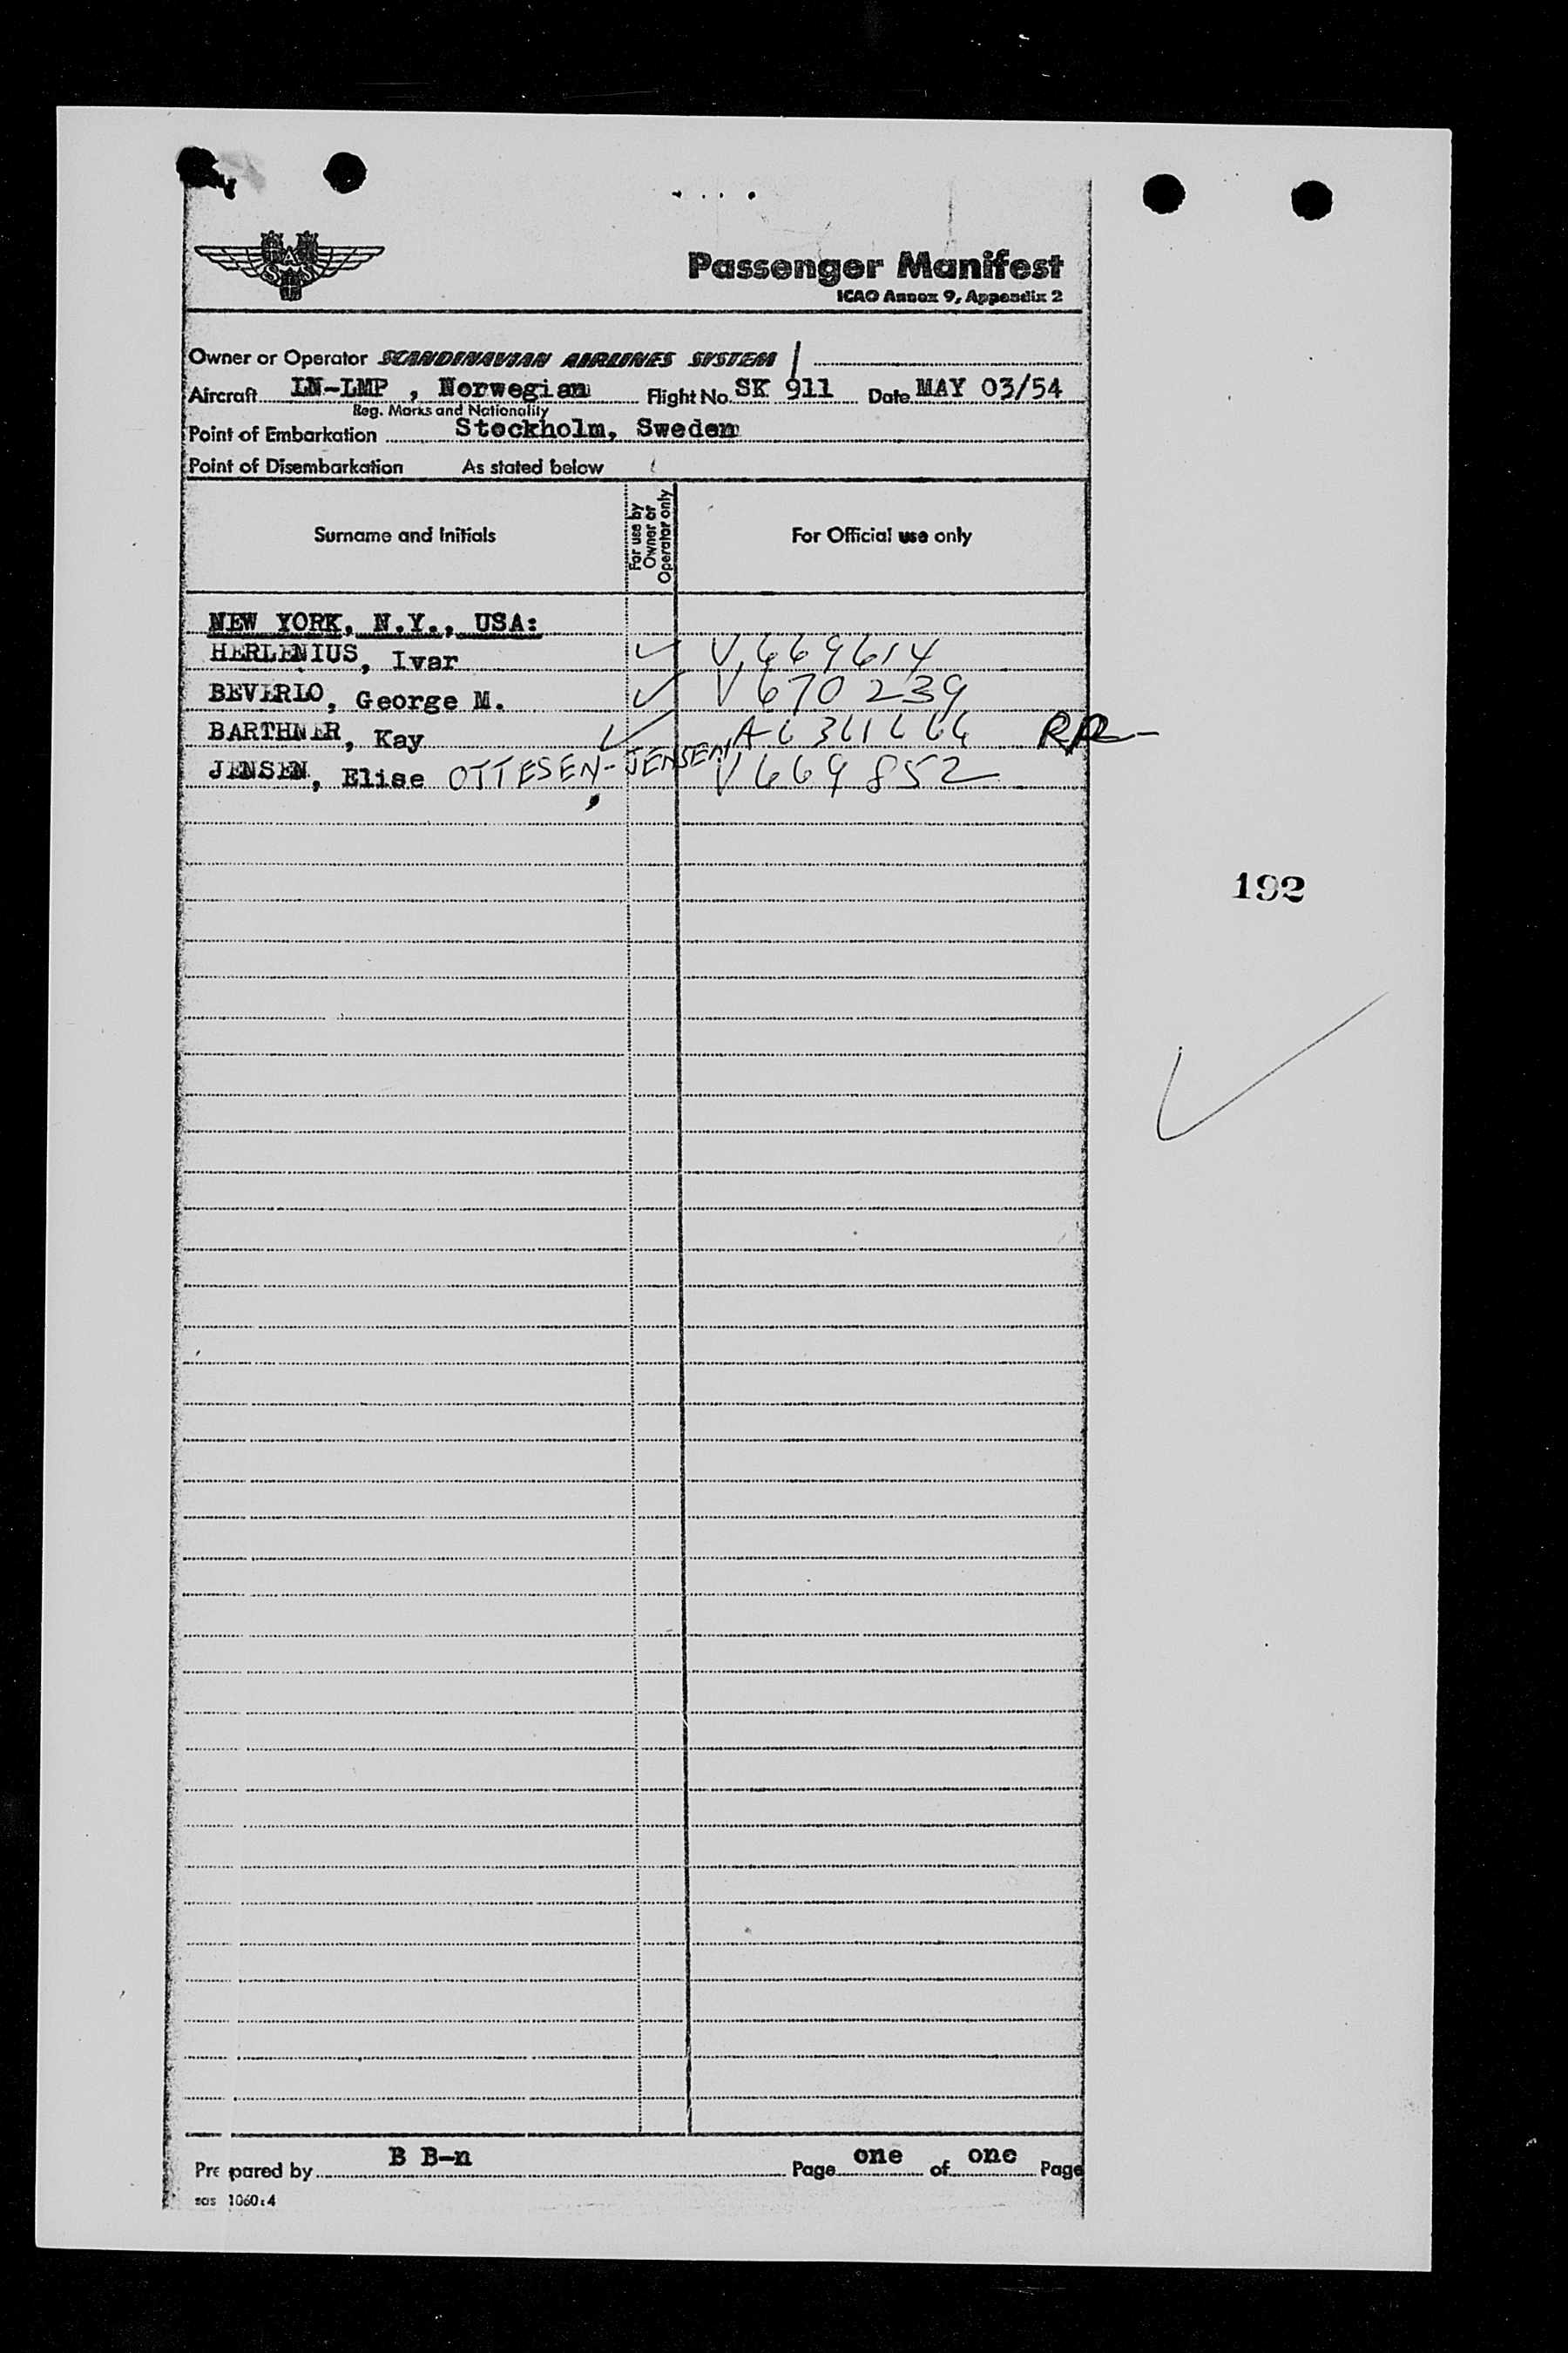 SAS
Passenger Manifest
ICAO Annex 9, Appendix 2
Owner or Operator SCANDINAVIAN AIRLINES SYSTEM /
Aircraft LN-LMP , Norwegian Flight No. SK 911 Date MAY 03/54
Reg. Marks and Nationality
Point of Embarkation Stockholm, Sweden
Point of Disembarkation As stated below
Surname and Initials For use by Owner or Operator only For Official use only
NEW YORK, N.Y., USA:
HERLENIUS, Ivar ✓ V 669614
BEVERLO, George M. ✓ V 670239
BARTHNER, Kay ✓ A6361666
JENSEN, Elise OTTESEN-JENSEN, V 669852
192
Prepared by B B-n Page one of one Page
sas 1060:4